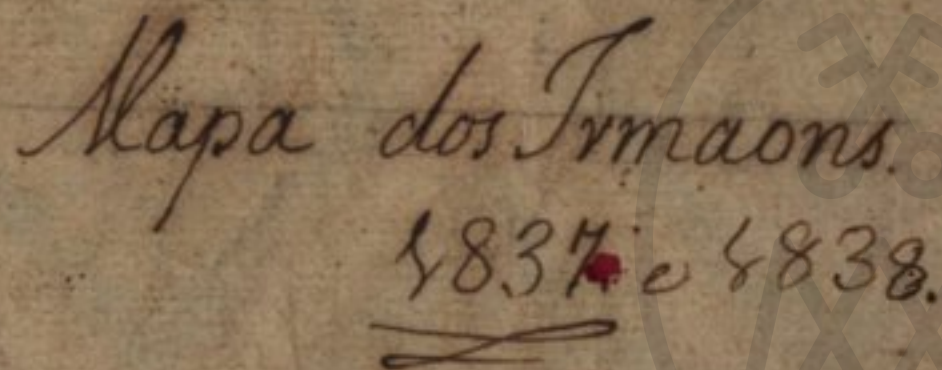 Mapa dos Irmaons.
1837. e 1838.